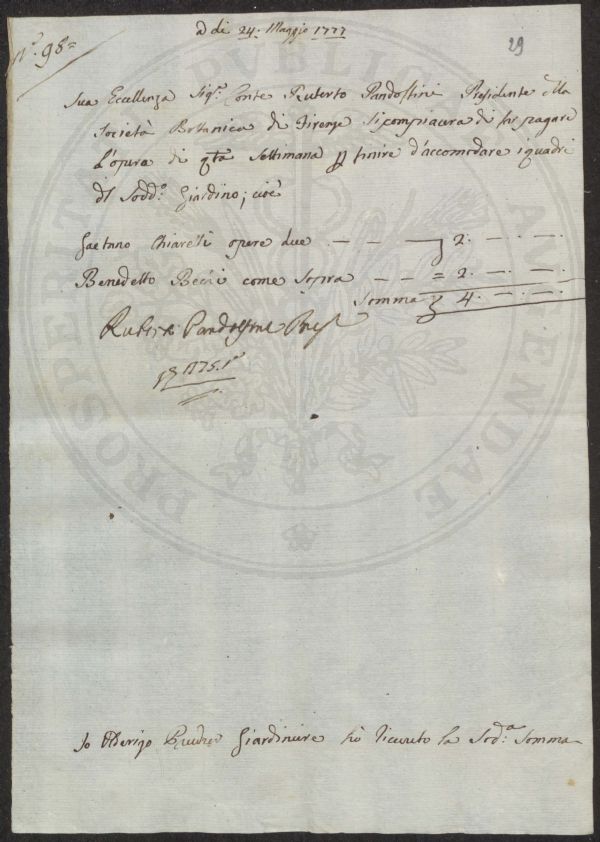 a di 24. Maggio 1777
29
N.º 98=
Sua Eccellenza Sig.r Conte Ruberto Pandolfini Presidente della
Società Botanica di Firenze si compiacerà di far pagare
l'opera di q.ta Settimana p finire d'accomodare i quadri
del Sodd.º Giardino; cioè
Gaetano Chiareli opere due — — — 2. —. —.
Benedetto Becii come sopra — — = 2. —. —.
Somma 4. —. —.
Rubto Pandolfini
Io Ulderigo Giardiniere hò ricevuto la Sod.a Somma
PROSPERITATI PUBLICAE AUGENDAE